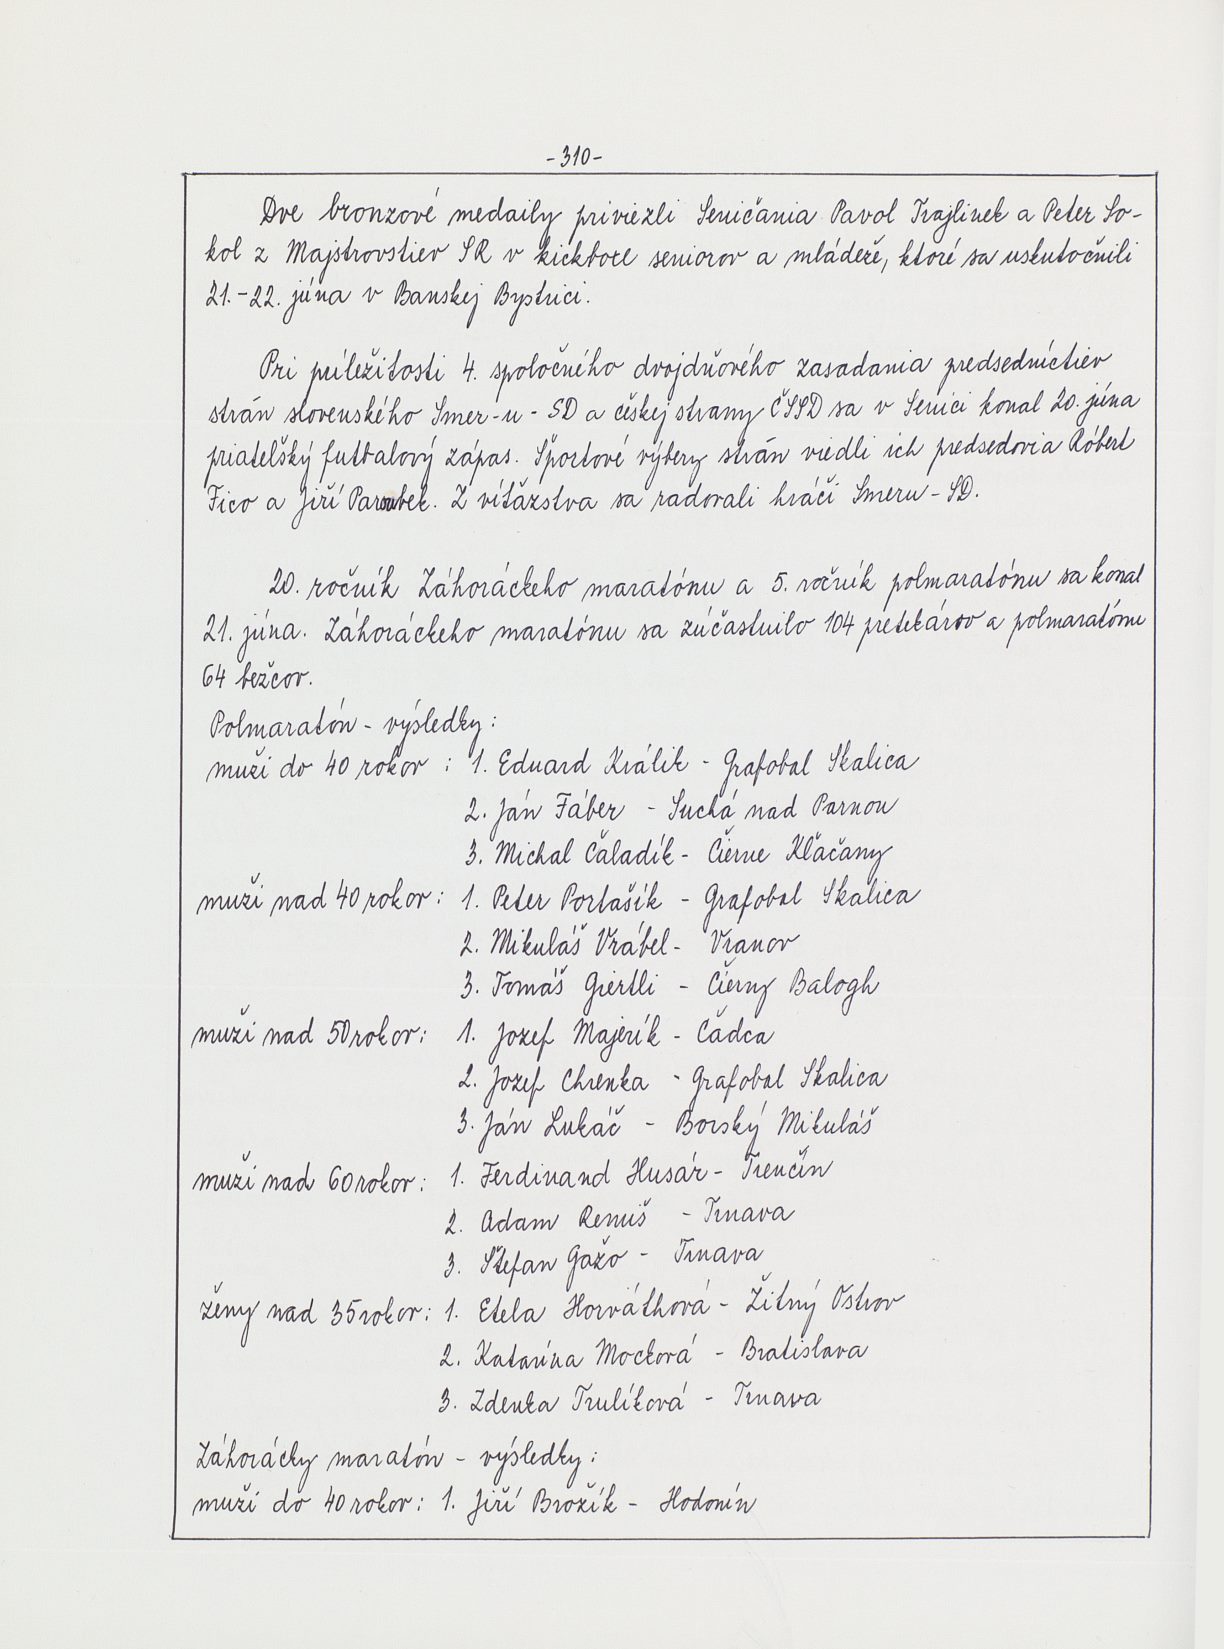 -310-
Dve bronzové medaily priviezli Seničania Pavol Trajlinek a Peter So-
kol z Majstrovstiev SR v kickboxe seniorov a mládeže, ktoré sa uskutočnili
21.-22. júna v Banskej Bystrici.
Pri príležitosti 4. spoločného dvojdňového zasadania predsedníctiev
strán slovenského Smer-u - SD a českej strany ČSSD sa v Senici konal 20. júna
priateľský futbalový zápas. Športové výbery strán viedli ich predsedovia Róbert
Fico a Jiří Paroubek. Z víťazstva sa radovali hráči Smeru - SD.
20. ročník Záhoráckeho maratónu a 5. ročník polmaratónu sa konal
21. júna. Záhoráckeho maratónu sa zúčastnilo 104 pretekárov a polmaratónu
64 bežcov.
Polmaratón - výsledky:
muži do 40 rokov : 1. Eduard Králik - Grafobal Skalica
2. Ján Fáber - Suchá nad Parnou
3. Michal Čaladík - Čierne Kľačany
muži nad 40 rokov: 1. Peter Portašík - Grafobal Skalica
2. Mikuláš Vrábel - Vranov
3. Tomáš Giertli - Čierny Balogh
muži nad 50 rokov: 1. Jozef Majerík - Čadca
2. Jozef Chrenka - Grafobal Skalica
3. Ján Lukáč - Borský Mikuláš
muži nad 60 rokov: 1. Ferdinand Husár - Trenčín
2. Adam Remiš - Trnava
3. Štefan Gažo - Trnava
ženy nad 35 rokov: 1. Etela Horváthová - Žitný Ostrov
2. Katarína Mocková - Bratislava
3. Zdenka Trulíková - Trnava
Záhorácky maratón - výsledky:
muži do 40 rokov: 1. Jiří Brožík - Hodonín